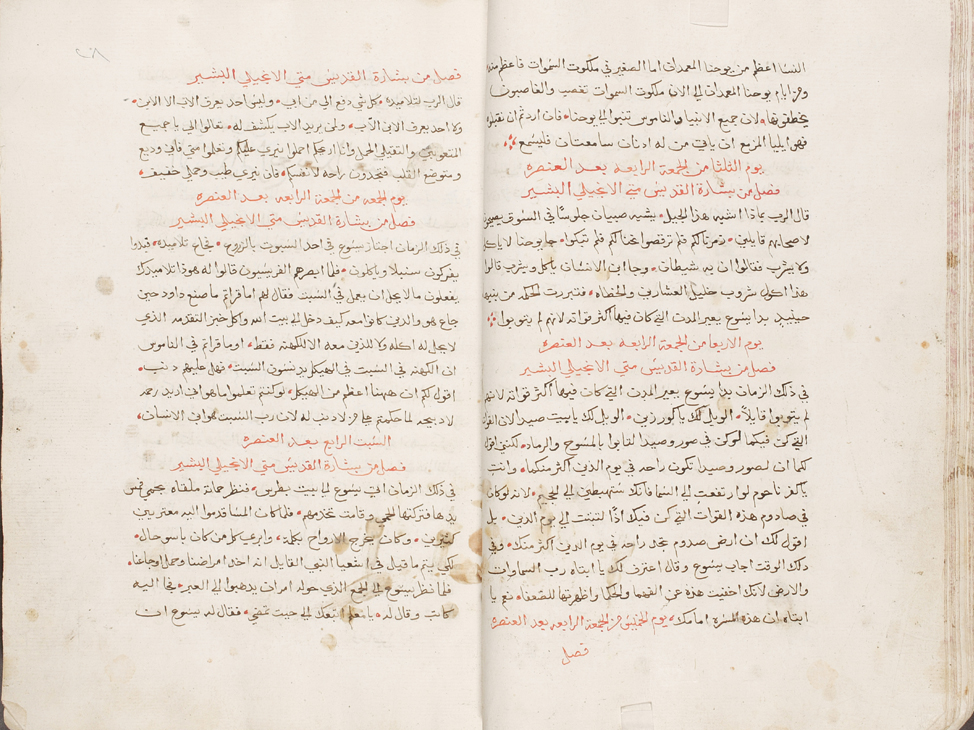 النسا اعظم من يوحنا المعمدان اما الصغير في ملكوت السموات فاعظم منه
ومن ايام يوحنا المعمدان الي الان ملكوت السموات تغصب والغاصبون
يختطفونها٭ لان جميع الانبيا والناموس تنبوا الي يوحنا٭ فان اردتم ان تقبلوا
فهو ايليا المزمع ان ياتي من له ادنان سامعتان فليسمع
يوم الثلثا من الجمعة الرابعه بعد العنصره
فصل من بشارة القديس متي الانجيلي البشير
قال الرب بماذا اشبه هذا الجيل٭ يشبه صبيان جلوسًا في السوق يصيحون
لاصحابهم قايلين٭ زمرنا لكم فلم ترقصوا نحنا لكم فلم تبكوا٭ جا يوحنا لا ياكل
ولا يشرب فقالوا ان به شيطان٭ وجا ابن الانسان ياكل ويشرب قالوا
هذا اكول شروب خليل العشارين والخطاه٭ فتبررت الحكمه من بنيها
حينيد بدا يسوع يعير المدن التي كان فيها اكثر قواته لانهم لم يتوبوا
يوم الاربعا من الجمعة الرابعه بعد العنصره
فصل من بشارة القديس متي الانجيلي البشير
في ذلك الزمان بدا يسوع يعير المدن التي كان فيها اكثر قواته لانهم
لم يتوبوا قايلاً٭ الويل لك يا كورزين٭ الويل لك يا بيت صيدا لان القوات
التي كن فيكما لو كن في صور وصيدا لتابوا بالمسوح والرماد٭ لكنني اقول
لكما ان لصور وصيدا تكون راحه في يوم الدين اكثر منكما٭ وانت
يا كفر ناحوم لو ارتفعت الي السما فانك ستهبطين الي الجحيم٭ لانه لو كان
في صادوم هذه القوات التي كن فيك اذًا لثبتت الي يوم الدين٭ بل
اقول لك ان ارض صدوم تجد راحه في يوم الدين اكثر منك٭ وفي
ذلك الوقت اجاب يسوع وقال اعترف لك يا ابتاه رب السماوات
والارض لانك اخفيت هذه عن الفهما والحكما واظهرتها للضعفا٭ نعم يا
ابتاه ان هذه المسره امامك٭ يوم الخميس من الجمعة الرابعه بعد العنصره
فصل
٢٨
فصل من بشارة القديس متي الانجيلي البشير
قال الرب لتلاميده٭ كل شي دفع الي من ابي٭ وليس احد يعرف الاب الا الابن٭
ولا احد يعرف الابن الا الاب٭ ولمن يريد الاب يكشف له٭ تعالوا الي يا جميع
المتعوبين والثقيلي الحمل وانا اريحكم احملوا نيري عليكم وتعلموا مني فاني وديع
ومتوضع القلب فتجدون راحة لانفسكم٭ فان نيري طيب وحملي خفيف٭
يوم الجمعه من الجمعة الرابعه بعد العنصره
فصل من بشارة القديس متي الانجيلي البشير
في ذلك الزمان اجتاز يسوع في احد السبوت بالزروع٭ فجاع تلاميده٭ فبدوا
يفركون سنبلا وياكلون٭ فلما ابصرهم الفريسيون قالوا له هوذا تلاميدك
يفعلون ما لا يحل ان يعمل في السبت فقال لهم اما قراتم ما صنع داود حين
جاع هو والدين كانوا معه كيف دخل الي بيت الله واكل خبز التقدمه الذي
لا يحل له اكله ولا للذين معه الا للكهنه فقط٭ اوما قراتم في الناموس
ان الكهنه في السبت في الهيكل يدنسون السبت٭ فهل عليهم دنب٭
اقول لكم ان ههنا اعظم من الهيكل٭ لو كنتم تعلموا ما هو اني اريد رحمه
لا دبيحه لما حكمتم علي من لا دنب له لان رب السبت هو ابن الانسان٭
السبت الرابع بعد العنصره
فصل من بشارة القديس متي الانجيلي البشير
في ذلك الزمان اتي يسوع الي بيت بطرس٭ فنظر حماته ملقاه بحمي فمس
يدها فتركتها الحمي وقامت تخدمهم٭ فلما كان المسا قدموا اليه معتريين
كثيرين٭ وكان يخرج الارواح بكلمة٭ وابري كل من كان باسو حال٭
لكي يتم ما قيل في اشعيا النبي القايل انه اخد امراضنا وحمل اوجاعنا٭
فلما نظر يسوع الي الجمع الذي حوله امر ان يدهبوا الي العبر٭ فجا اليه
كاتب وقال له٭ يا معلم اتبعك الي حيث تمضي٭ فقال له يسوع ان